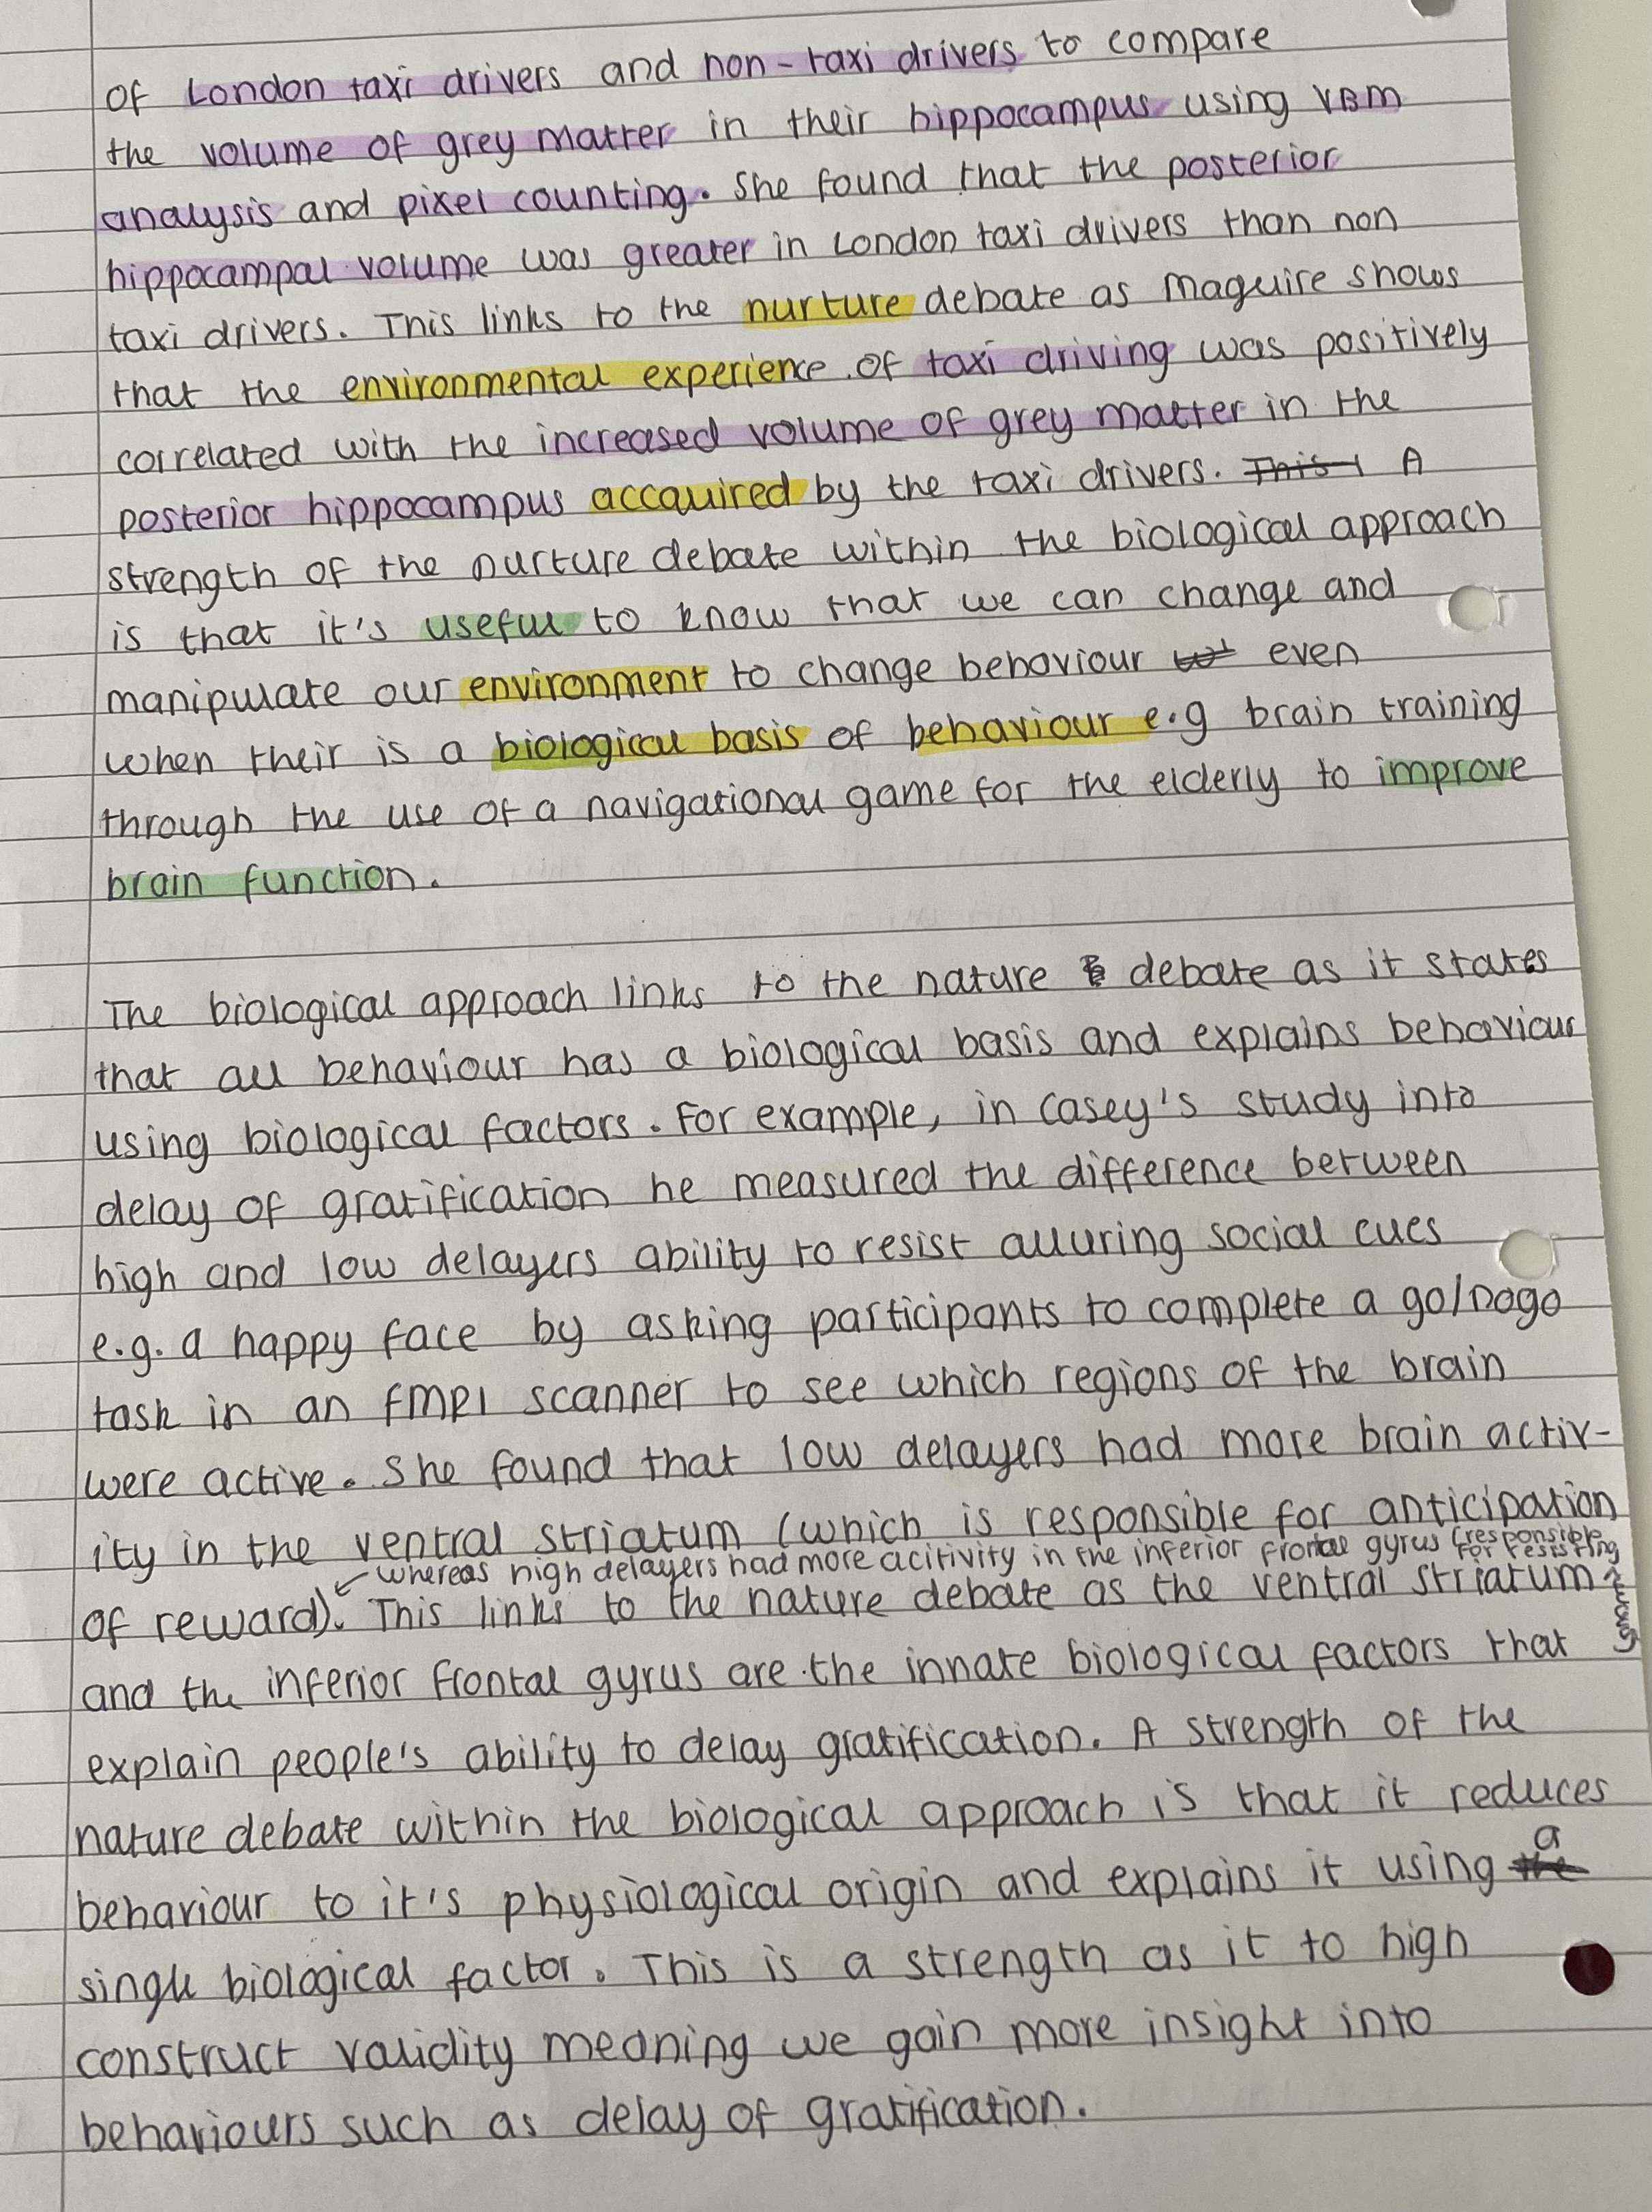 of London taxi drivers and non-taxi drivers to compare
the volume of grey matter in their hippocampus using VBM
analysis and pixel counting. She found that the posterior
hippocampal volume was greater in London taxi drivers than non
taxi drivers. This links to the nurture debate as Maguire shows
that the environmental experience of taxi driving was positively
correlated with the increased volume of grey matter in the
posterior hippocampus accquired by the taxi drivers. This l A
strength of the nurture debate within the biological approach
is that it's useful to know that we can change and
manipulate our environment to change behaviour even
when their is a biological basis of behaviour e.g brain training
through the use of a navigational game for the elderly to improve
brain function.
The biological approach links to the nature debate as it states
that all behaviour has a biological basis and explains behaviour
using biological factors. For example, in Casey's study into
delay of gratification he measured the difference between
high and low delayers ability to resist alluring social cues
e.g. a happy face by asking participants to complete a go/nogo
task in an fMRI scanner to see which regions of the brain
were active. She found that low delayers had more brain activ-
ity in the ventral striatum (which is responsible for anticipation
whereas high delayers had more acitivity in the inferior frontal gyrus (responsible for resisting
of reward). This links to the nature debate as the ventral striatum
and the inferior frontal gyrus are the innate biological factors that
explain people's ability to delay gratification. A strength of the
nature debate within the biological approach is that it reduces
behaviour to it's physiological origin and explains it using the a
single biological factor. This is a strength as it to high
construct validity meaning we gain more insight into
behaviours such as delay of gratification.